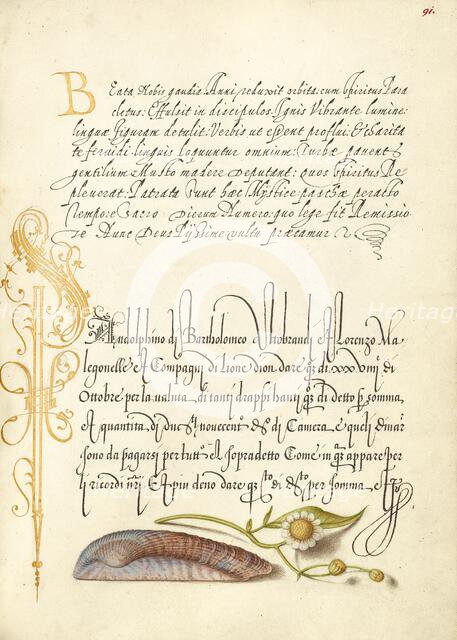 91.
Beata Nobis gaudia. Anni reduxit orbita: cum Spiritus Para
cletus: Effulsit in discipulos. Ignis Vibrante lumine:
linguæ figuram detulit: Verbis ut essent proflui: & charita
te fervidi. linguis loquuntur omnium: Turbæ pavent
gentilium Musto madere deputant: quos Spiritus Re
pleverat. Patrata Sunt hæc Mystice: paschæ peracto
tempore Sacro Dierum Numero: quo lege fit Remissio
Te Nunc Deus Pijssime vultu præcamur
di Bartholomeo Altobrandi & Lorenzo Ma
legonelle & Compagni di Lione dion dare
Ottobre per la valuta di tanti drappi hanti di detto p somma
& quantita di novecento di Camera e quali
sono da pagarsi per tutt Al sopradetto Come in appare per
li ricordi Et piu deno dare di per somma
Heritage
Heritage